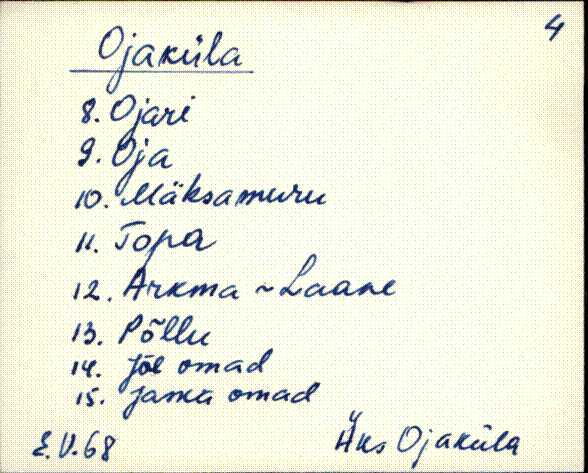 4
Ojaküla
8. Ojari
9. Oja
10. Mäksamuru
11. Topa
12. Arkma ~ Laane
13. Põllu
14. Jõe omad
15. Jaska omad
E.V.68
Äks Ojaküla